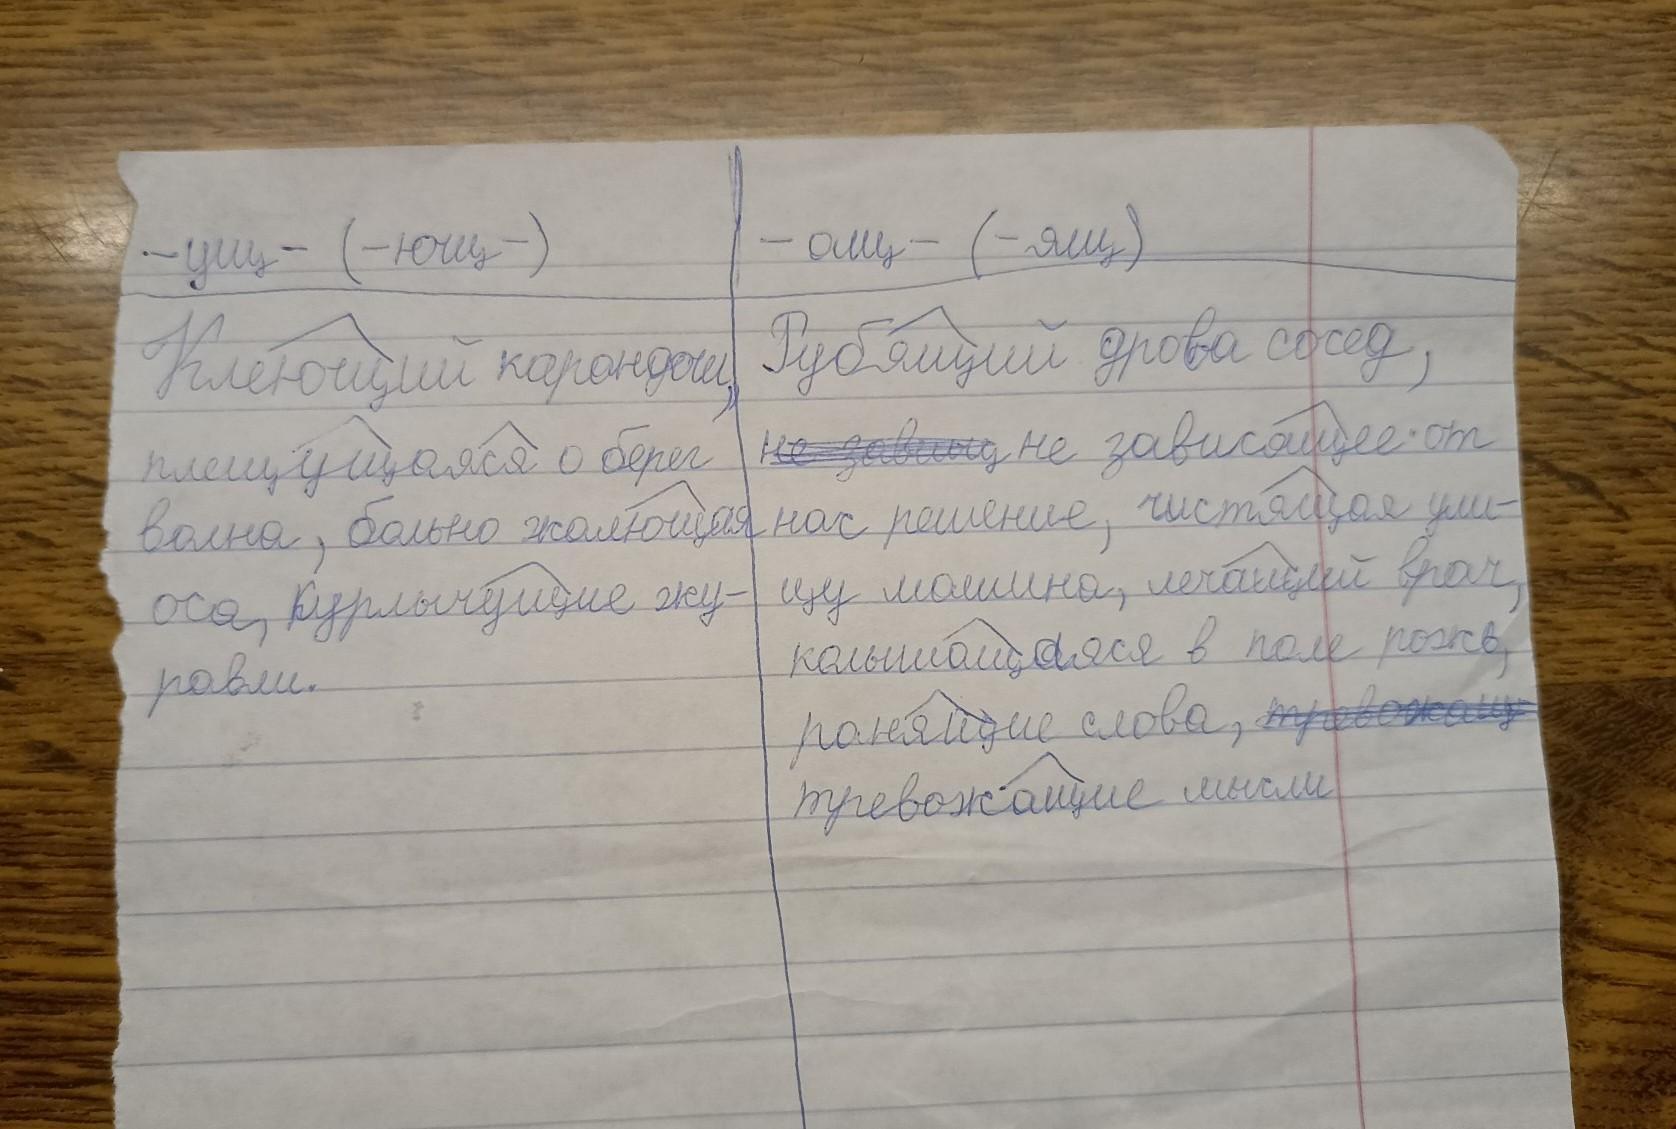 -ущ- (-ющ-)
-ащ- (-ящ)
Клеющий карандаш,
плещущаяся о берег
волна, больно жалющая
оса, курлычущие жу-
равли.
Рубящий дрова сосед,
не завищ не зависащее от
нас решение, чистящая ули-
цу машина, лечащий врач,
колышащаяся в поле рожь,
ранящие слова, тревожащ
тревожащие мысли